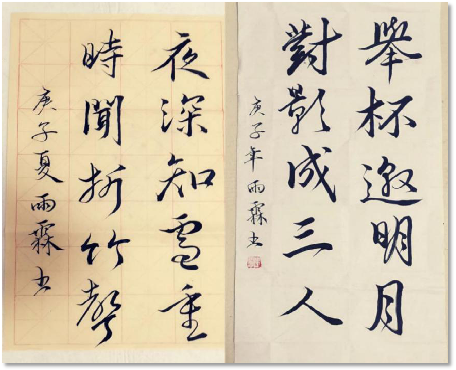 舉杯邀明月
對影成三人
庚子年雨霖书
夜深知雪重
時聞折竹聲
庚子夏雨霖书